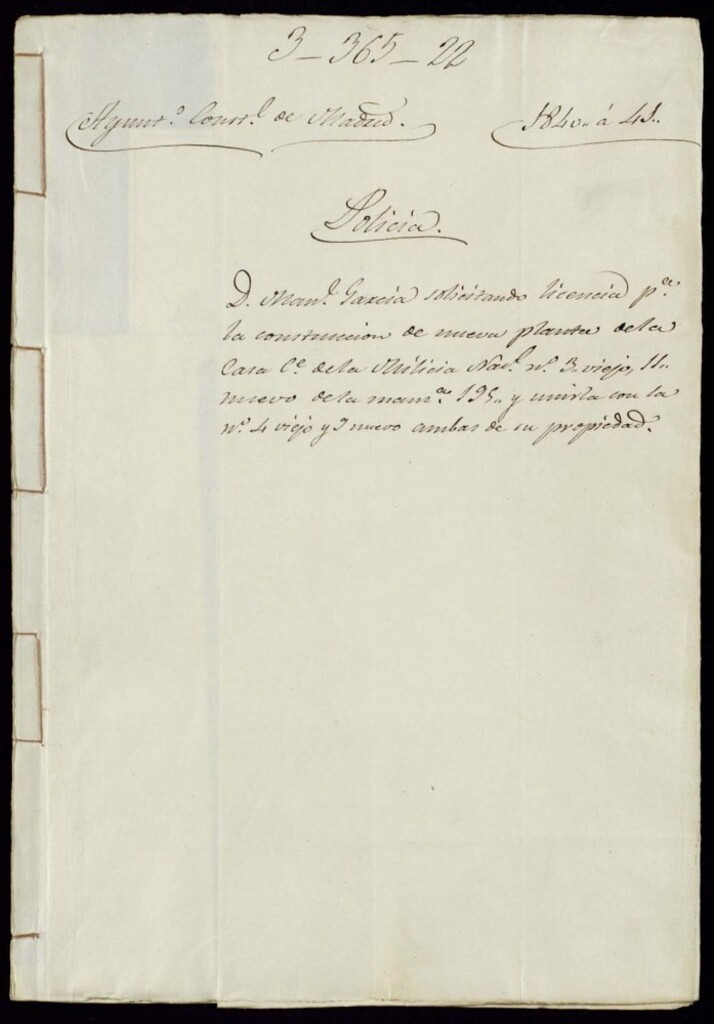 3-365-22
Ayunt.º Const.l de Madrid. 1840 á 41..
Policia.
D. Man.l Garcia solicitando licencia p.a
la construccion de nueva planta de la
Casa C.e de la Milicia Nac.l n.º 3 viejo, 11..
nuevo de la manz.a 195.. y unirla con la
n.º 4 viejo y 9 nuevo ambas de su propiedad.